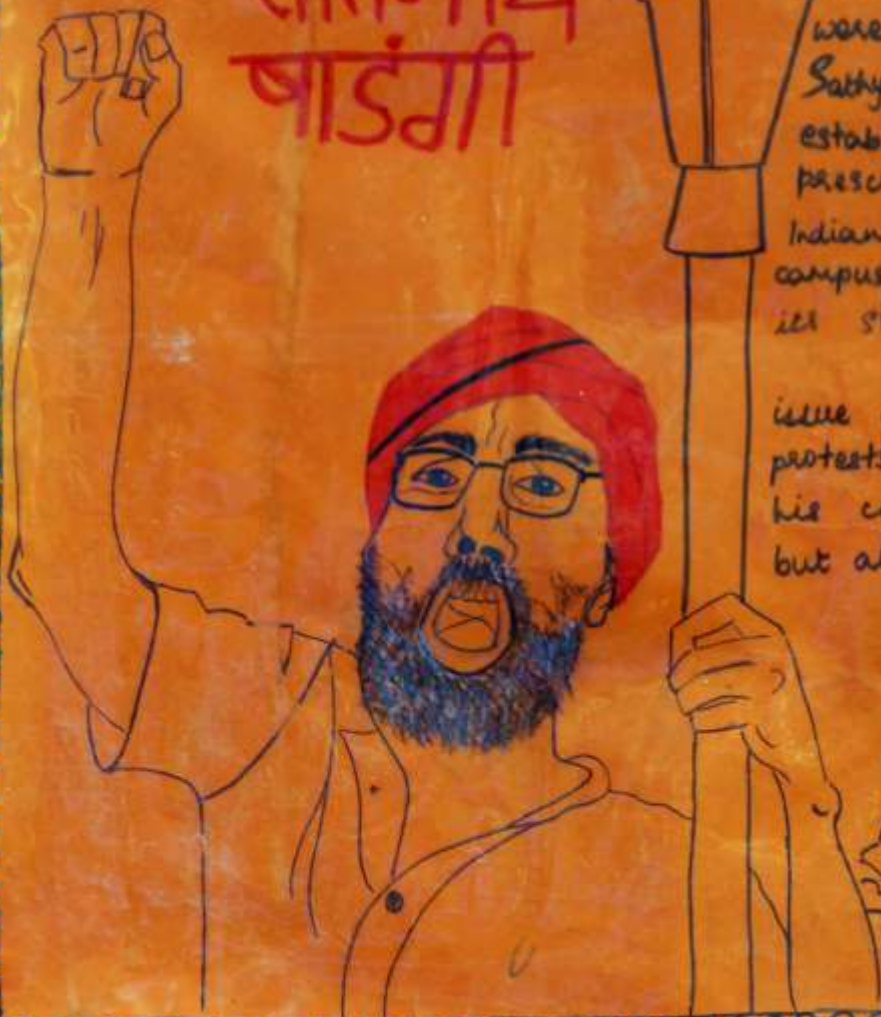 षाडंगी
were
Sathy
estab
presc
Indian
campus
its s
issue
protests
his c
but al